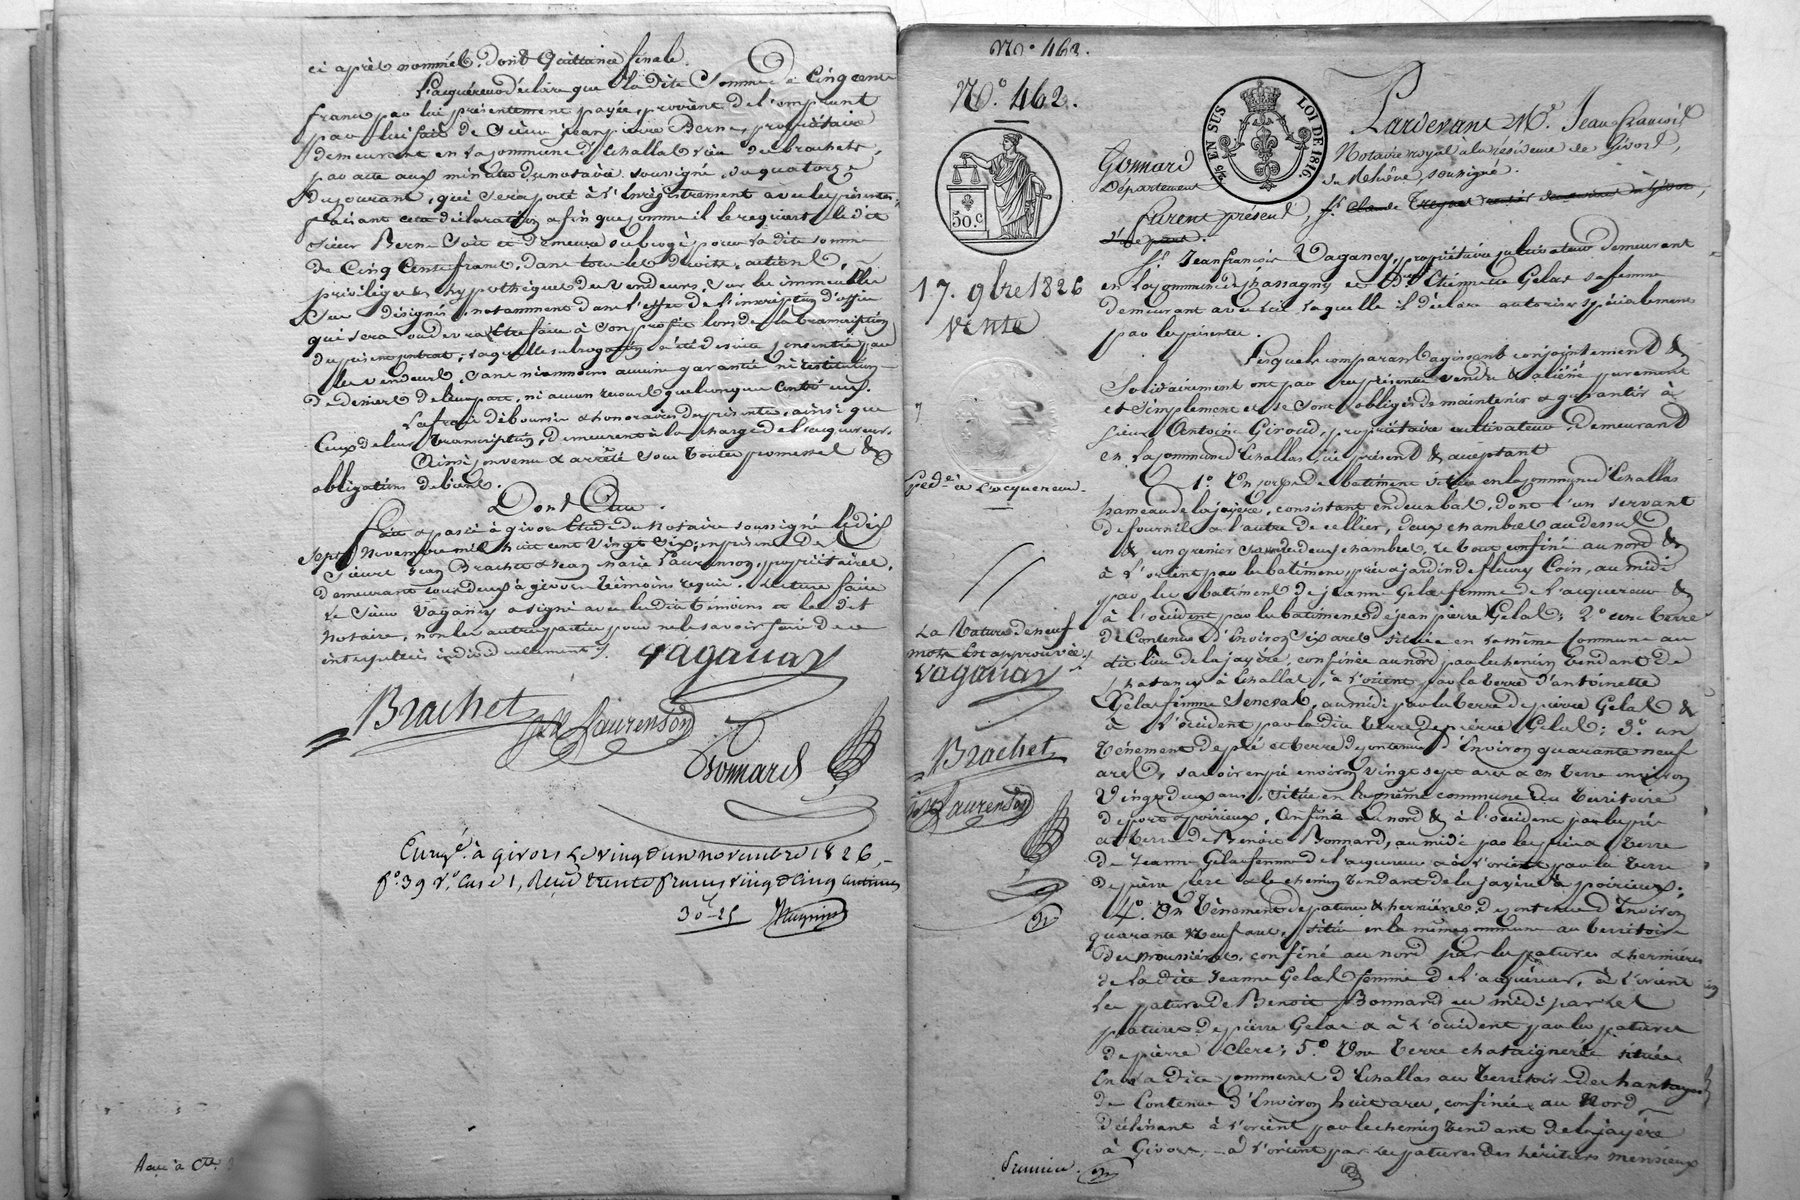 ci après nommée, dont Quittance finale.
L'acquéreur déclare que la dite Somme de Cinq cents
francs par lui présentement payée, provient de l'emprunt
par lui fait de Sieur Jeanpierre Berne, propriétaire
demeurant en la commune d'Echallas lieu de brachets,
par acte aux minutes du notaire soussigné, du quatorze
du courant, qui sera porté à l'Enregistrement avec les présentes,
faisant cette déclaration afin que comme il le requiert le dit
Sieur Berne soit et demeure subrogé pour la dite somme
de Cinq Cents francs, dans tous les droits, actions,
privilèges & hypothèques des Vendeurs, sur les immeubles
sus désignés, notamment dans l'effet de l'inscription d'office
qui sera ou devra être faite à son profit lors de la transcription
du présent contrat, laquelle subrogation a été de suite consentie par
les Vendeurs, sans néanmoins aucune garantie ni restitution
de deniers de leur part, ni aucun recours quelconque contr'eux.
Les frais déboursés & honoraires des présentes, ainsi que
Ceux de leur transcription, demeurent à la charge de l'acquéreur.
Ainsi convenu & arrêté sous toutes promesses &
obligations de biens.
Dont Acte.
Fait & passé à givors Etude du Notaire soussigné le dix
Sept Novembre mil huit cent Vingt Six, en présence de
Sieurs Jean Brachet & Jean Marie Laurenson, propriétaires,
demeurant tous deux à givors témoins requis. Lecture faite
le Sieur Vaganay a signé avec les dits témoins et le dit
Notaire, non les autres parties pour ne le savoir faire de ce
interpellées individuellement
vaganay
Brachet
Laurenson
Gonnard
Enreg.é à givors le vingt un novembre 1826,
f.o 39 v.o Case 1, Reçu trente francs vingt cinq centimes
30f-25
N.o 462.
N.o 462.
50.c
17. 9bre 1826
Vente
Exped.é à l'acquéreur.
La Rature de neuf
mots est approuvée
vaganay
Brachet
Laurenson
EN SUS
LOI DE 1816.
Pardevant M.e Jean francois
Gonnard Notaire royal à la résidence de Givors,
Département du Rhône, soussigné.
Furent présents, s.r Claude
Jeanfrancois Vaganay, propriétaire cultivateur demeurant
en la commune de chassagny et D.e Etiennette Gelas sa femme
demeurant avec lui laquelle il déclare autoriser spécialement
par les présentes.
Lesquels comparants agissant conjointement &
Solidairement ont par ces présentes vendu & aliéné purement
et simplement et se sont obligés de maintenir & garantir à
sieur Antoine Giroud, propriétaire cultivateur demeurant
en la commune d'Echallas ici présent & acceptant
1.o Un corps de bâtiment situé en la commune d'Echallas
hameau de la jayère, consistant en deux bas, dont l'un servant
de fournil & l'autre de cellier, deux chambres au dessus
& un grenier sur les deux chambres, le tout confiné au nord &
à l'orient par les bâtiments, prés & jardin de fleury Coin, au midi
par les bâtiments de jeanne Gelas femme de l'acquéreur &
à l'occident par les bâtiments de jean pierre Gelas; 2.o une terre
de Contenue d'Environ six ares située en la même commune au
dit lieu de la jayère, confinée au nord par le chemin tendant de
à Echallas, à l'orient par la terre d'antoinette
Gelas femme Seneval, au midi par la terre de pierre Gelas &
à l'occident par la dite terre de pierre Gelas; 3.o un
tènement de pré et terre de contenue d'Environ quarante neuf
ares, savoir en pré environ vingt sept ares & en terre environ
Vingt deux ares, située en la même commune au territoire
de poirieux, Confiné au nord & à l'occident par les prés
et terre de Benoit Bonnard, au midi par les pré & terre
de Jeanne Gelas femme de l'acquéreur & à l'orient par la terre
de pierre Clerc & le chemin tendant de la jayère à poirieux;
4.o Un tènement de patures & hermières de contenue d'Environ
quarante Neuf ares, située en la même commune au territoire
des moussières, confiné au nord par les patures & hermières
de la dite Jeanne Gelas femme de l'acquéreur, à l'orient
les patures de Benoit Bonnard au midi par les
patures de pierre Gelas & à l'occident par les patures
de pierre Clerc; 5.o Une terre chataignerée située
en la dite commune d'Echallas au territoire des
de Contenue d'Environ huit ares, confinée au Nord
déclinant à l'orient par le chemin tendant de la jayère
à Givors, à l'orient par les patures des héritiers